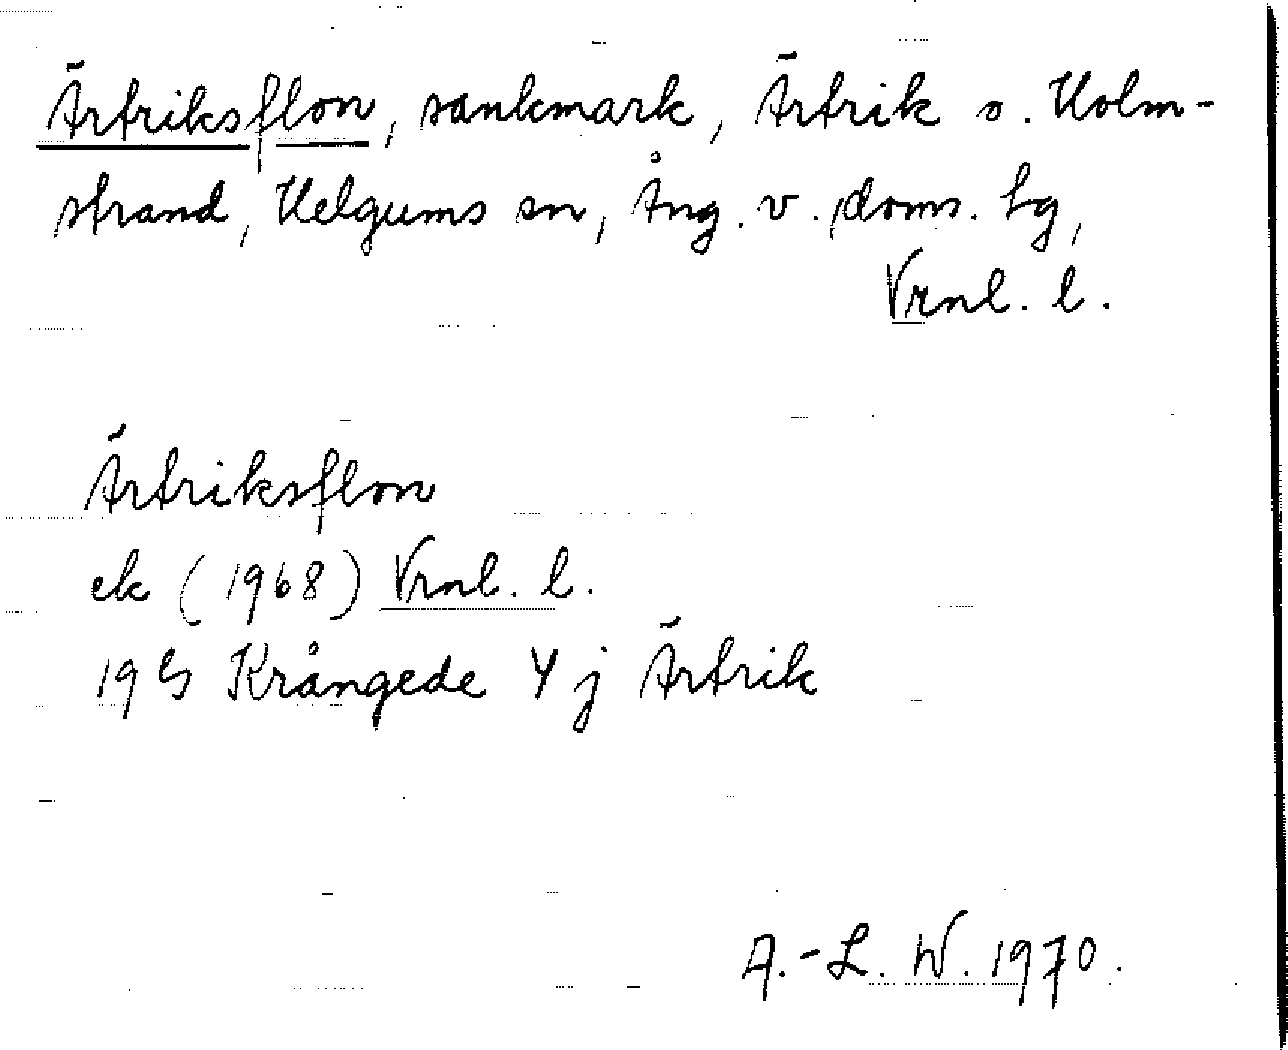 Ärtriksflon, sankmark, Ärtrik o. Holm-
strand, Helgums sn, Ång. v. doms. hg,
Vrnl. l.
Ärtriksflon
ek (1968) Vrnl. l.
19 G Krångede 4 j Ärtrik
A.-L. W. 1970.